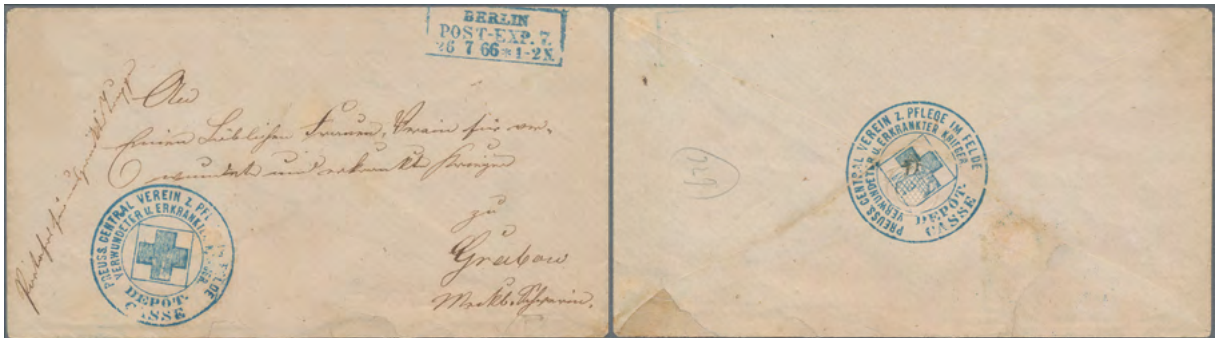 BERLIN
POST-EXP. 7.
26 7 66 * 1-2 N.
An
Einen Löblichen Frauen-Verein für ver-
wundete und erkrankte Krieger
zu
Grabow
Meckb. Schwerin.
PREUSS. CENTRAL VEREIN Z. PFL FELDE
VERWUNDETER U. ERKRANKTER
DEPÔT-
CASSE
PREUSS. CENTRAL VEREIN Z. PFLEGE IM FELDE
VERWUNDETER U. ERKRANKTER KRIEGER
DEPÔT-
CASSE